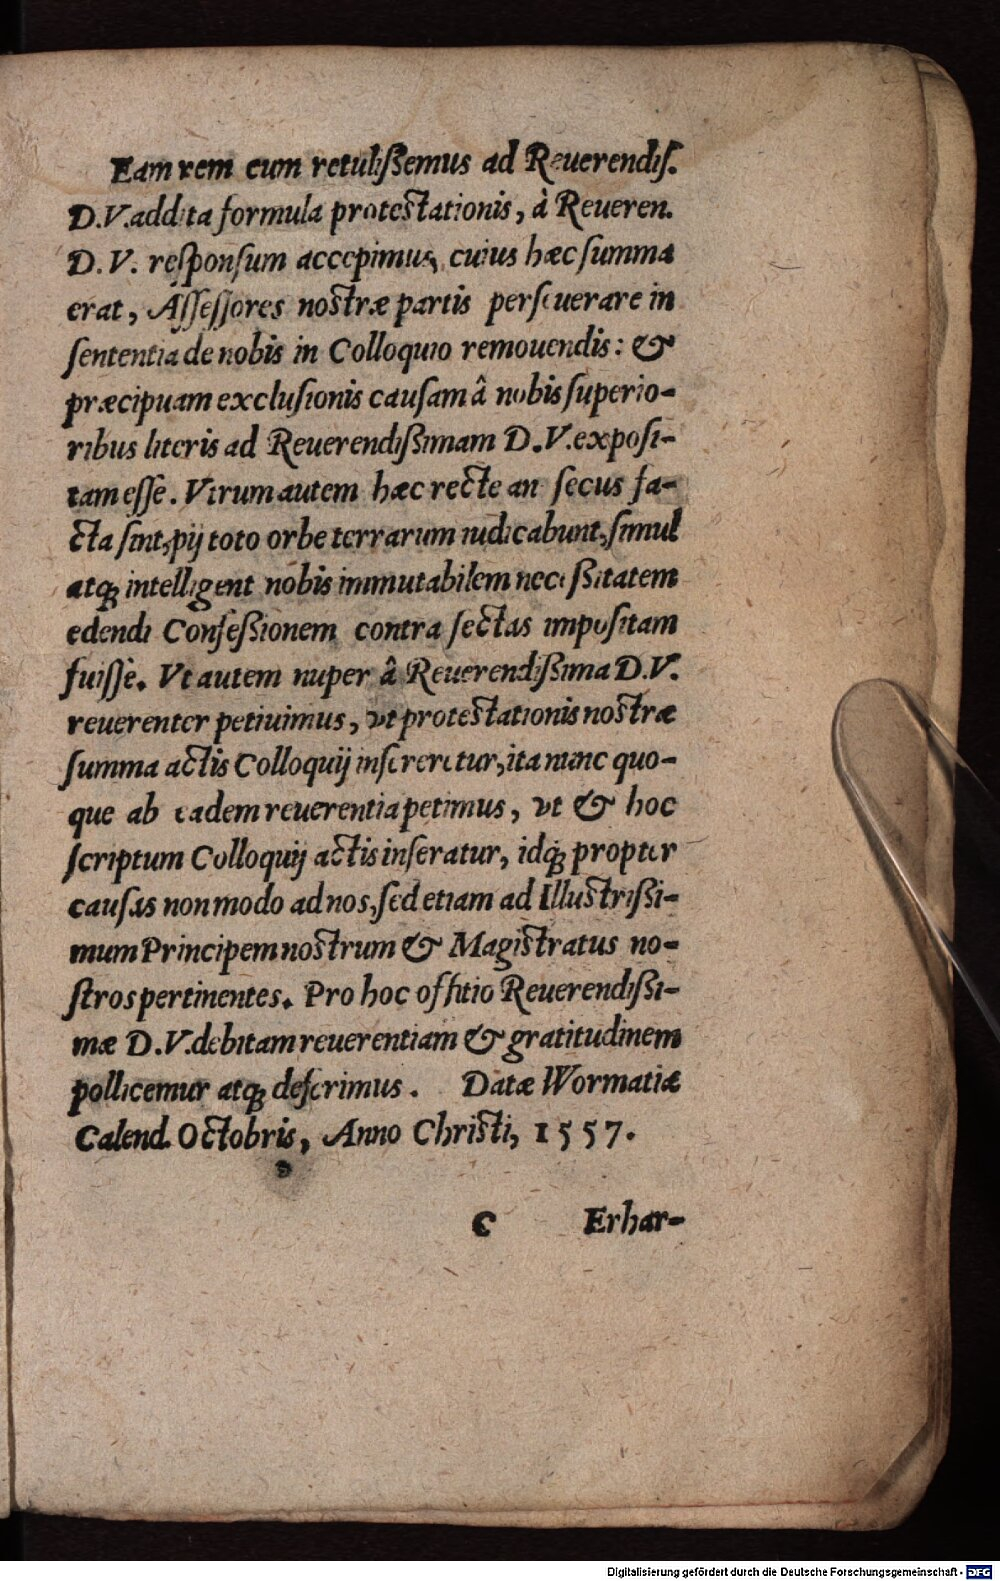 Eam rem cum retulißemus ad Reuerendiſ.
D.V. addita formula protestationis, à Reueren.
D. V. reſponſum accepimus, cuius hæc ſumma
erat, Aſſeſſores nostræ partis perſeuerare in
ſententia de nobis in Colloquio remouendis: &
præcipuam excluſionis cauſam â nobis ſuperio-
ribus literis ad Reuerendißimam D.V. expoſi-
tam eſſe. Vtrum autem hæc recte an ſecus fa-
cta ſint, pij toto orbe terrarum iudicabunt, ſimul
atq; intelligent nobis immutabilem neceßitatem
edendi Confeßionem contra ſectas impoſitam
fuiſſe. Vt autem nuper â Reuerendißima D.V.
reuerenter petiuimus, vt protestationis nostræ
ſumma actis Colloquij inſereretur, ita nunc quo-
que ab eadem reuerentia petimus, vt & hoc
ſcriptum Colloquij actis inſeratur, idq; propter
cauſas non modo ad nos, ſed etiam ad Illustrißi-
mum Principem nostrum & Magistratus no-
ſtros pertinentes. Pro hoc offitio Reuerendißi-
mæ D.V. debitam reuerentiam & gratitudinem
pollicemur atq; deferimus. Datæ Wormatiæ
Calend. Octobris, Anno Christi, 1557.
C Erhar-
Digitalisierung gefördert durch die Deutsche Forschungsgemeinschaft - DFG